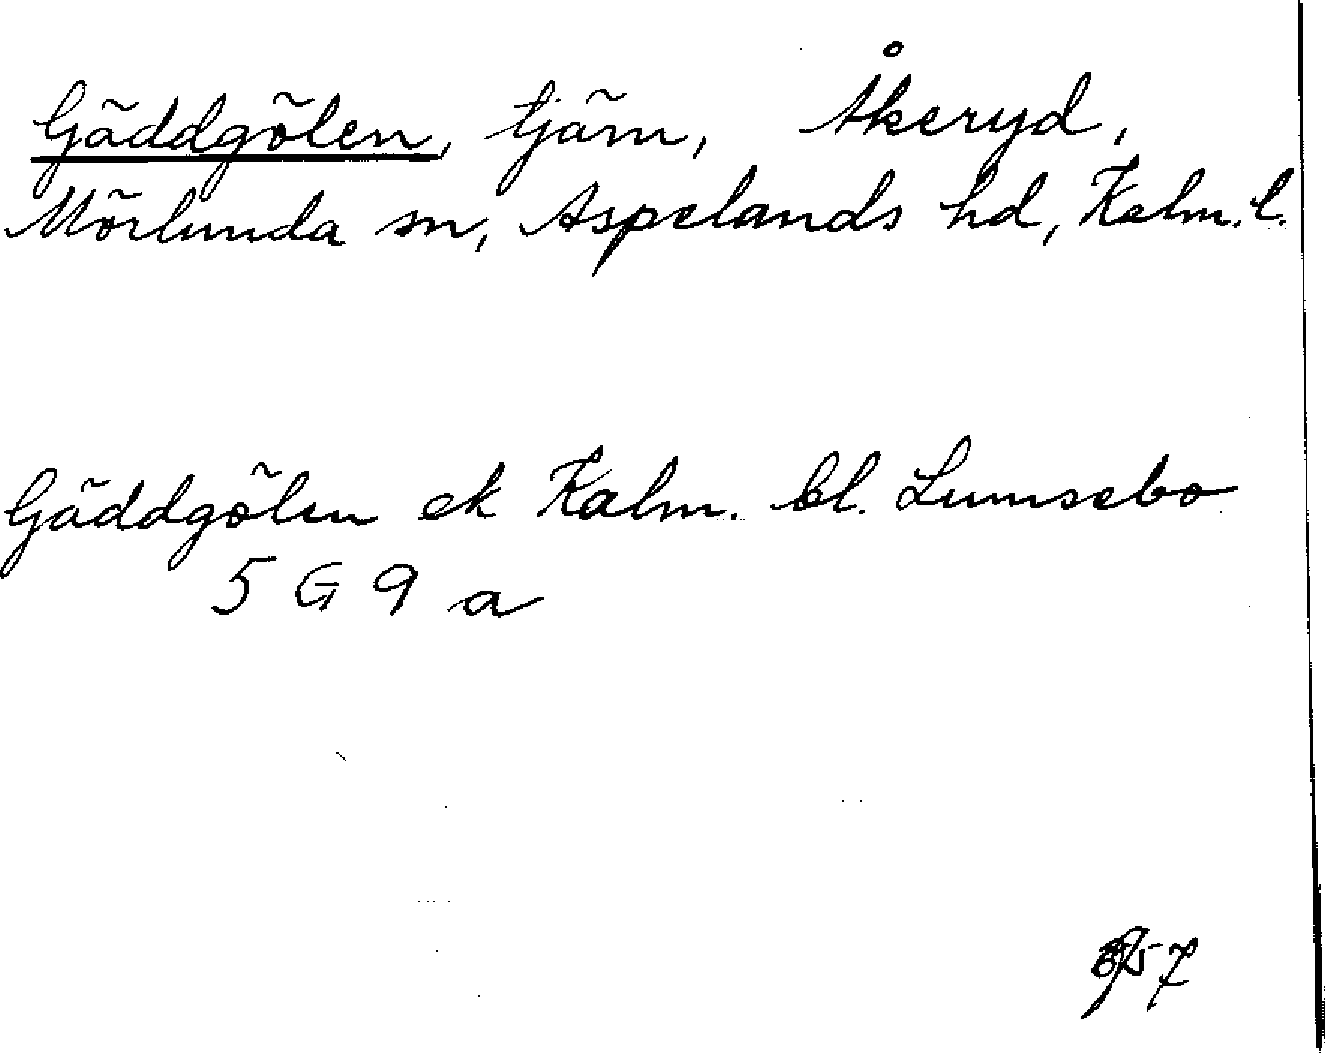 Gäddgölen, tjärn, Åkeryd,
Mörlunda sn, Aspelands hd, Kalm. l.
Gäddgölen ek Kalm. bl. Lumsebo
5 G 9 a